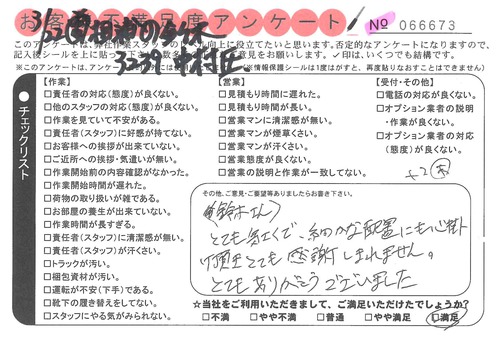 お客様不満足度アンケート
№ 066673
このアンケートは、弊社作業スタッフのレベル向上に役立てたいと思います。否定的なアンケートになりますので、
記入後シールを上に貼って
意見をお願いします。✓印は、いくつでも結構です。
チェックリスト
【作業】
□責任者の対応(態度)が良くない。
□他のスタッフの対応(態度)が良くない。
□作業を見ていて不安がある。
□責任者(スタッフ)に好感が持てない。
□お客様への挨拶が出来ていない。
□ご近所への挨拶・気遣いが無い。
□作業開始前の内容確認がなかった。
□作業開始時間が遅れた。
□荷物の取り扱いが雑である。
□お部屋の養生が出来ていない。
□作業時間が長すぎる。
□責任者(スタッフ)に清潔感が無い。
□責任者(スタッフ)が汗くさい。
□トラックが汚い。
□梱包資材が汚い。
□運転が不安(下手)である。
□靴下の履き替えをしてない。
□スタッフにやる気がみられない。
【営業】
□見積もり時間に遅れた。
□見積もり時間が長い。
□営業マンに清潔感が無い。
□営業マンが煙草くさい。
□営業マンが汗くさい。
□営業態度が良くない。
□営業の説明と作業が一致してない。
【受付・その他】
□電話の対応が良くない。
□オプション業者の説明
・作業が良くない。
□オプション業者の対応
(態度)が良くない。
その他、ご意見・ご要望等ありましたらお書き下さい。
(鈴木さん)
とても早くて、細かな配置にも心掛
け頂きとても感謝しきれません。
とてもありがとうございました
☆当社をご利用いただきまして、ご満足いただけたでしょうか?
□不満 □やや不満 □普通 □やや満足 □満足